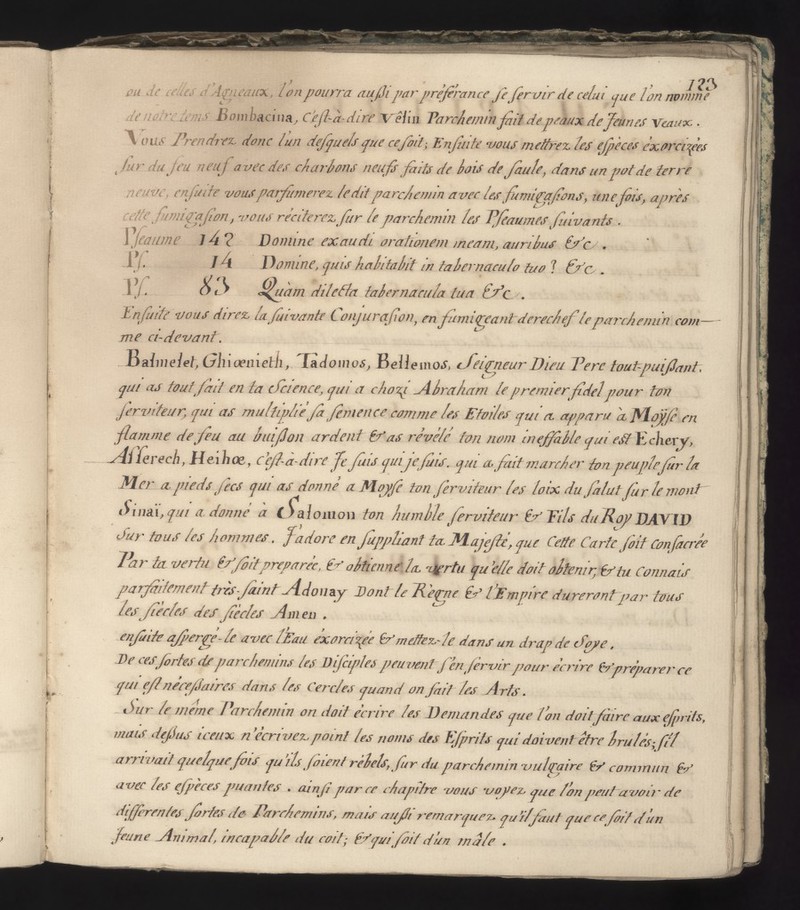 123
ou de celles d'Agneaux, l'on pourra außi par préférance se servir de celui que l'on nomme
de notre tems Bombacina, C'est-à-dire Vélin Parchemin fait de peaux de Jeunes Veaux.
Vous Prendrez donc l'un desquels que ce soit; Ensuite vous mettrez les espèces éxorcizées
sur du feu neuf avec des charbons neufs faits de bois de saule, dans un pot de terre
neuve, ensuite vous parfumerez ledit parchemin avec les fumigasions, une fois, après
cette fumigasion, vous réciterez sur le parchemin les Pseaumes suivants.
Pseaume 142 Domine exaudi orationem meam, auribus &c.
Ps. 14 Domine, quis habitabit in tabernaculo tuo? &c.
Ps. 83 Quàm dilecta tabernacula tua &c.
Ensuite vous direz la suivante Conjurasion, en fumigeant derechef le parchemin com-
me ci-devant.
Balmelet, Ghiœnieth, Tadomos, Bellemos, Seigneur Dieu Pere tout-puißant,
qui as tout fait en ta Science, qui a chozi Abraham le premier fidel pour ton
serviteur, qui as multiplié sa semence comme les Etoiles qui a apparu à Moÿse en
flamme de feu au buißon ardent & as révélé ton nom ineffable qui est Echery,
Asserech, Heihœ, C'est-à-dire Je suis qui je suis. qui a fait marcher ton peuple sur la
Mer a pieds secs qui as donné a Moyse ton serviteur les loix du salut sur le mont
Sinaï, qui a donné à Salomon ton humble serviteur & Fils du Roy DAVID
sur tous les hommes. J'adore en suppliant ta Majesté, que Cette Carte soit Consacrée
Par ta vertu & soit preparée, & obtienne la vertu qu'elle doit obtenir, & tu Connais
parfaitement très-saint Adonay Dont le Règne & l'Empire dureront par tous
les siècles des siècles Amen.
ensuite aspergé-le avec l'Eau éxorcizée & mettez-le dans un drap de Soye.
De ces sortes de parchemins les Disciples peuvent s'én servir pour écrire & préparer ce
qui est néceßaires dans les Cercles quand on fait les Arts.
Sur le même Parchemin on doit écrire les Demandes que l'on doit faire aux esprits,
mais deßus iceux n'écrivez point les noms des Esprits qui doivent être brulés; s'il
arrivait quelque fois qu'ils soient rébels, sur du parchemin vulgaire & commun &
avec les espèces puantes. ainsi par ce chapître vous voyez que l'on peut avoir de
différentes sortes de Parchemins, mais außi remarquez qu'il faut que ce soit d'un
Jeune Animal, incapable du coit; & qui soit d'un mâle.